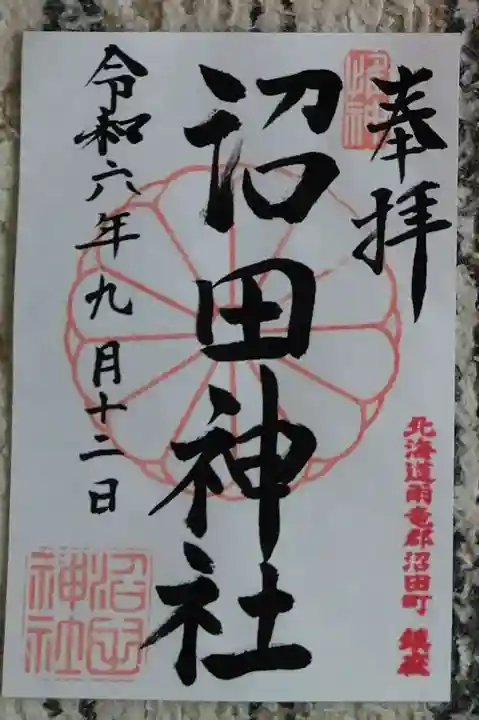 奉拝
北海道雨竜郡沼田町 鎮座
沼田神社
令和六年九月十二日
沼田
神社